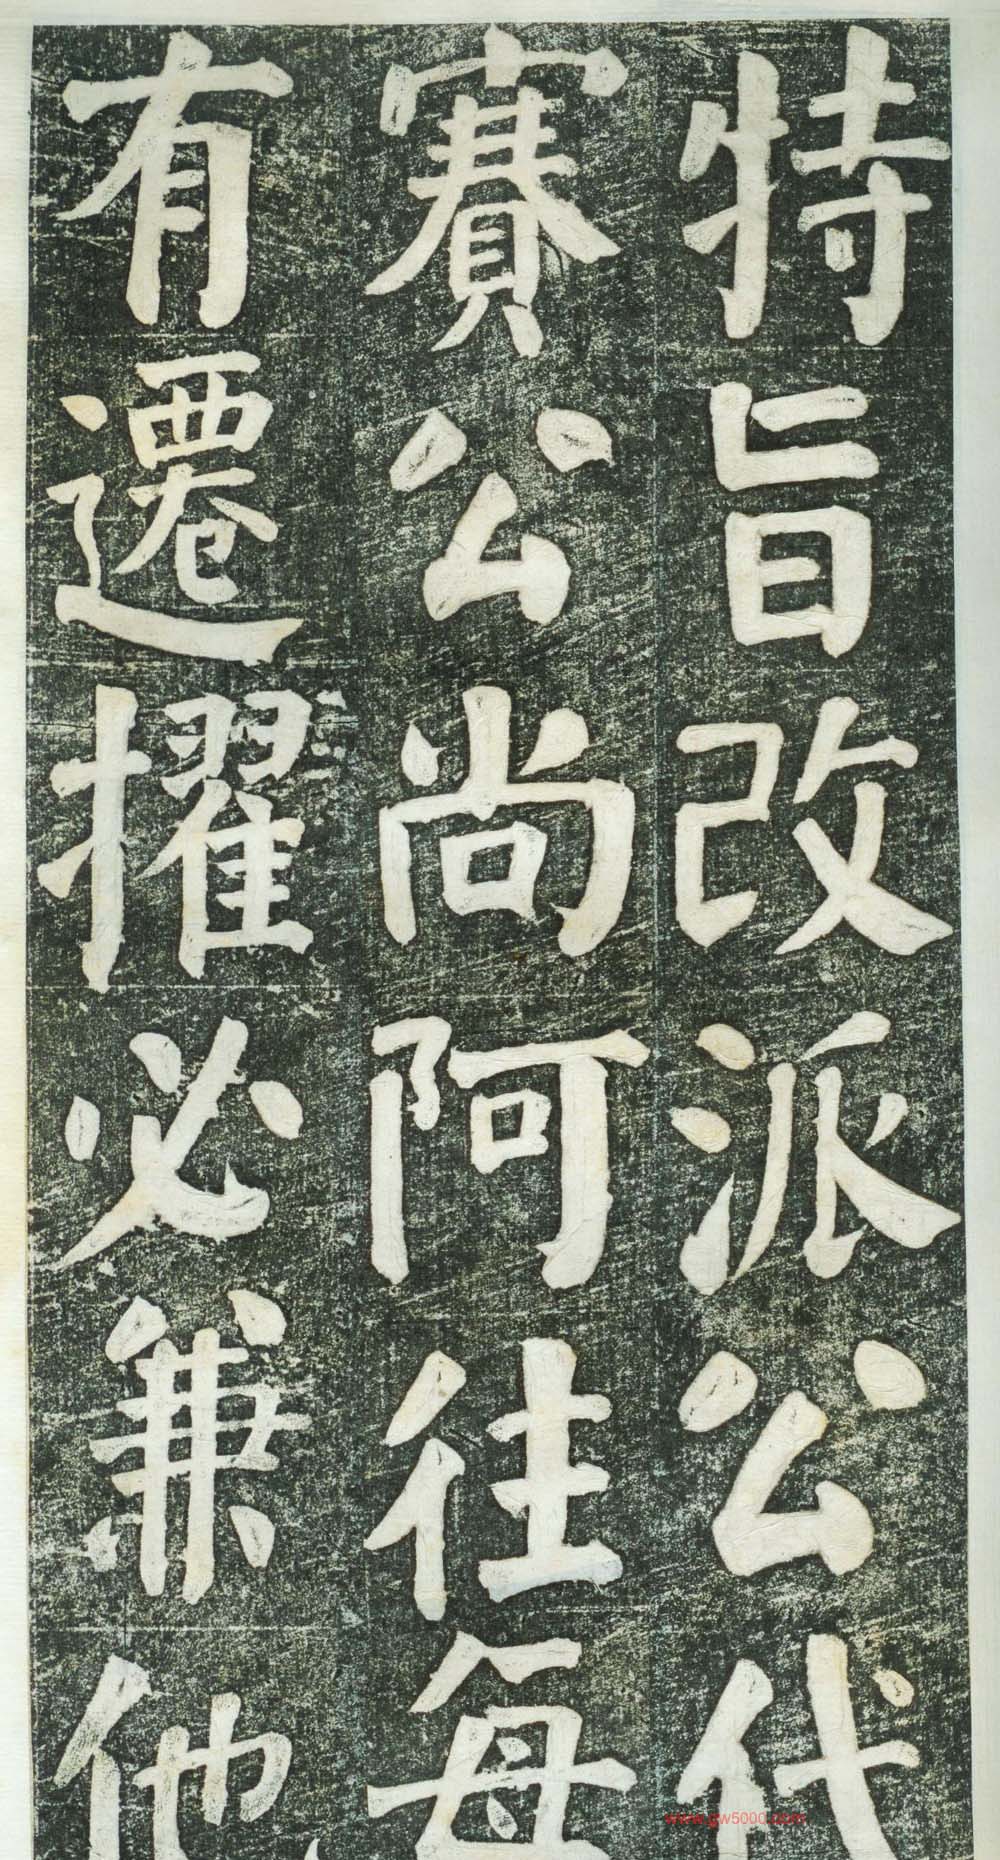 特旨改派公代
賽公尚阿往每
有遷擢必兼他
www.gw5000.com